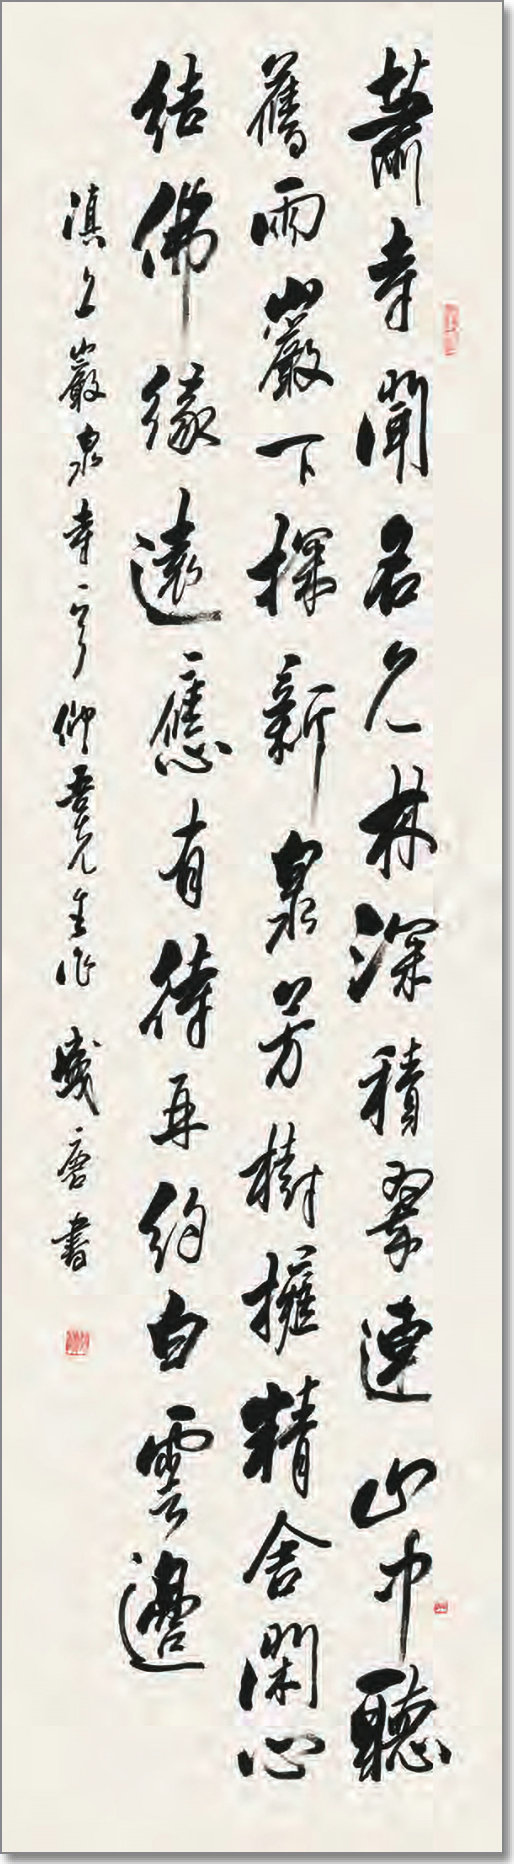 蕭寺聞名久林深積翠連山中聽
舊雨巖下探新泉芳樹擁精舍閑心
結佛緣遠應有待再約白雲邊
滇上巖泉寺一首仰吾先生作唐書